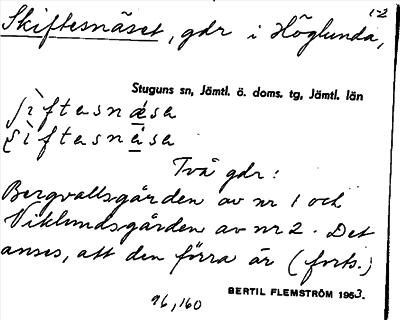 1-2
Skiftesnäset, gdr i Höglunda,
Stuguns sn, Jämtl. ö. doms. tg, Jämtl. län
ʃìftasnǽsa
Två gdr:
Bergvallsgården av nr 1 och
Viklundsgården av nr 2. Det
anses, att den förra är (forts.)
BERTIL FLEMSTRÖM 1953.
96,160